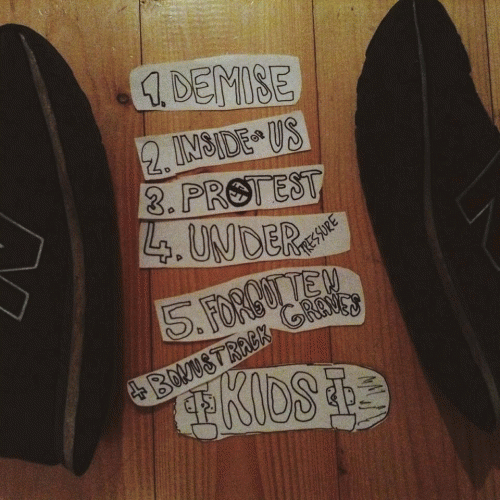 1. DEMISE
2. INSIDE OF US
3. PROTEST
4. UNDER PRESSURE
5. FORGOTTEN GRAVES
+ BONUSTRACK
KIDS
N